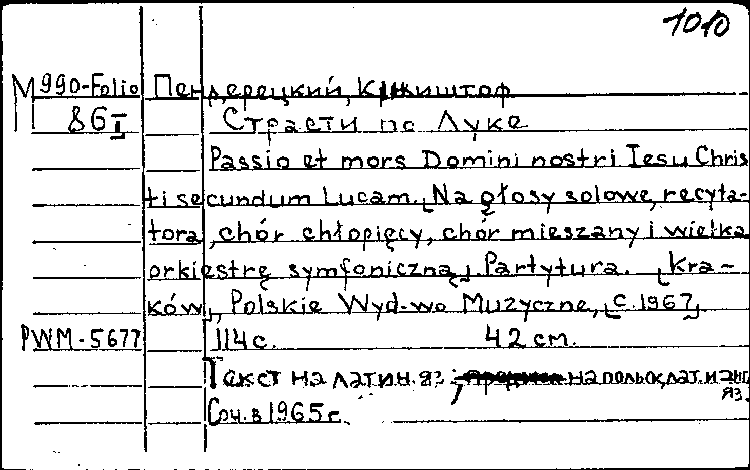 1010
M 990-Folio Пендерецкий, Кшиштоф
86 I Страсти по Луке
Passio et mors Domini nostri Iesu Chris
ti secundum Lucam. [Na głosy solowe, recyta-
tora, chór chłopięcy, chór mieszany i wielka
orkiestrę symfoniczną]. Partytura. [Kra-
ków], Polskie Wyd-wo Muzyczne, [c. 1967].
PWM-5677 114 с. 42 см.
Текст на латин. яз.; на польск, лат. и анг
яз.
Соч. в 1965 г.